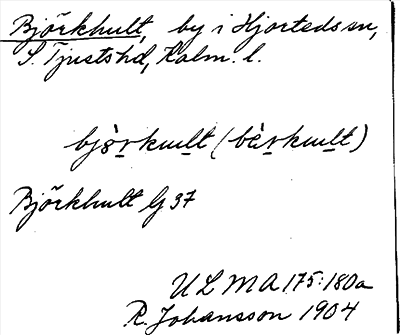 Björkhult, by i Hjorteds sn,
S. Tjusts hd, Kalm. l.
bjö̀rkwlt (bæ̀rkwlt)
Björkhult G 37
ULMA 175:180a
R. Johansson 1904